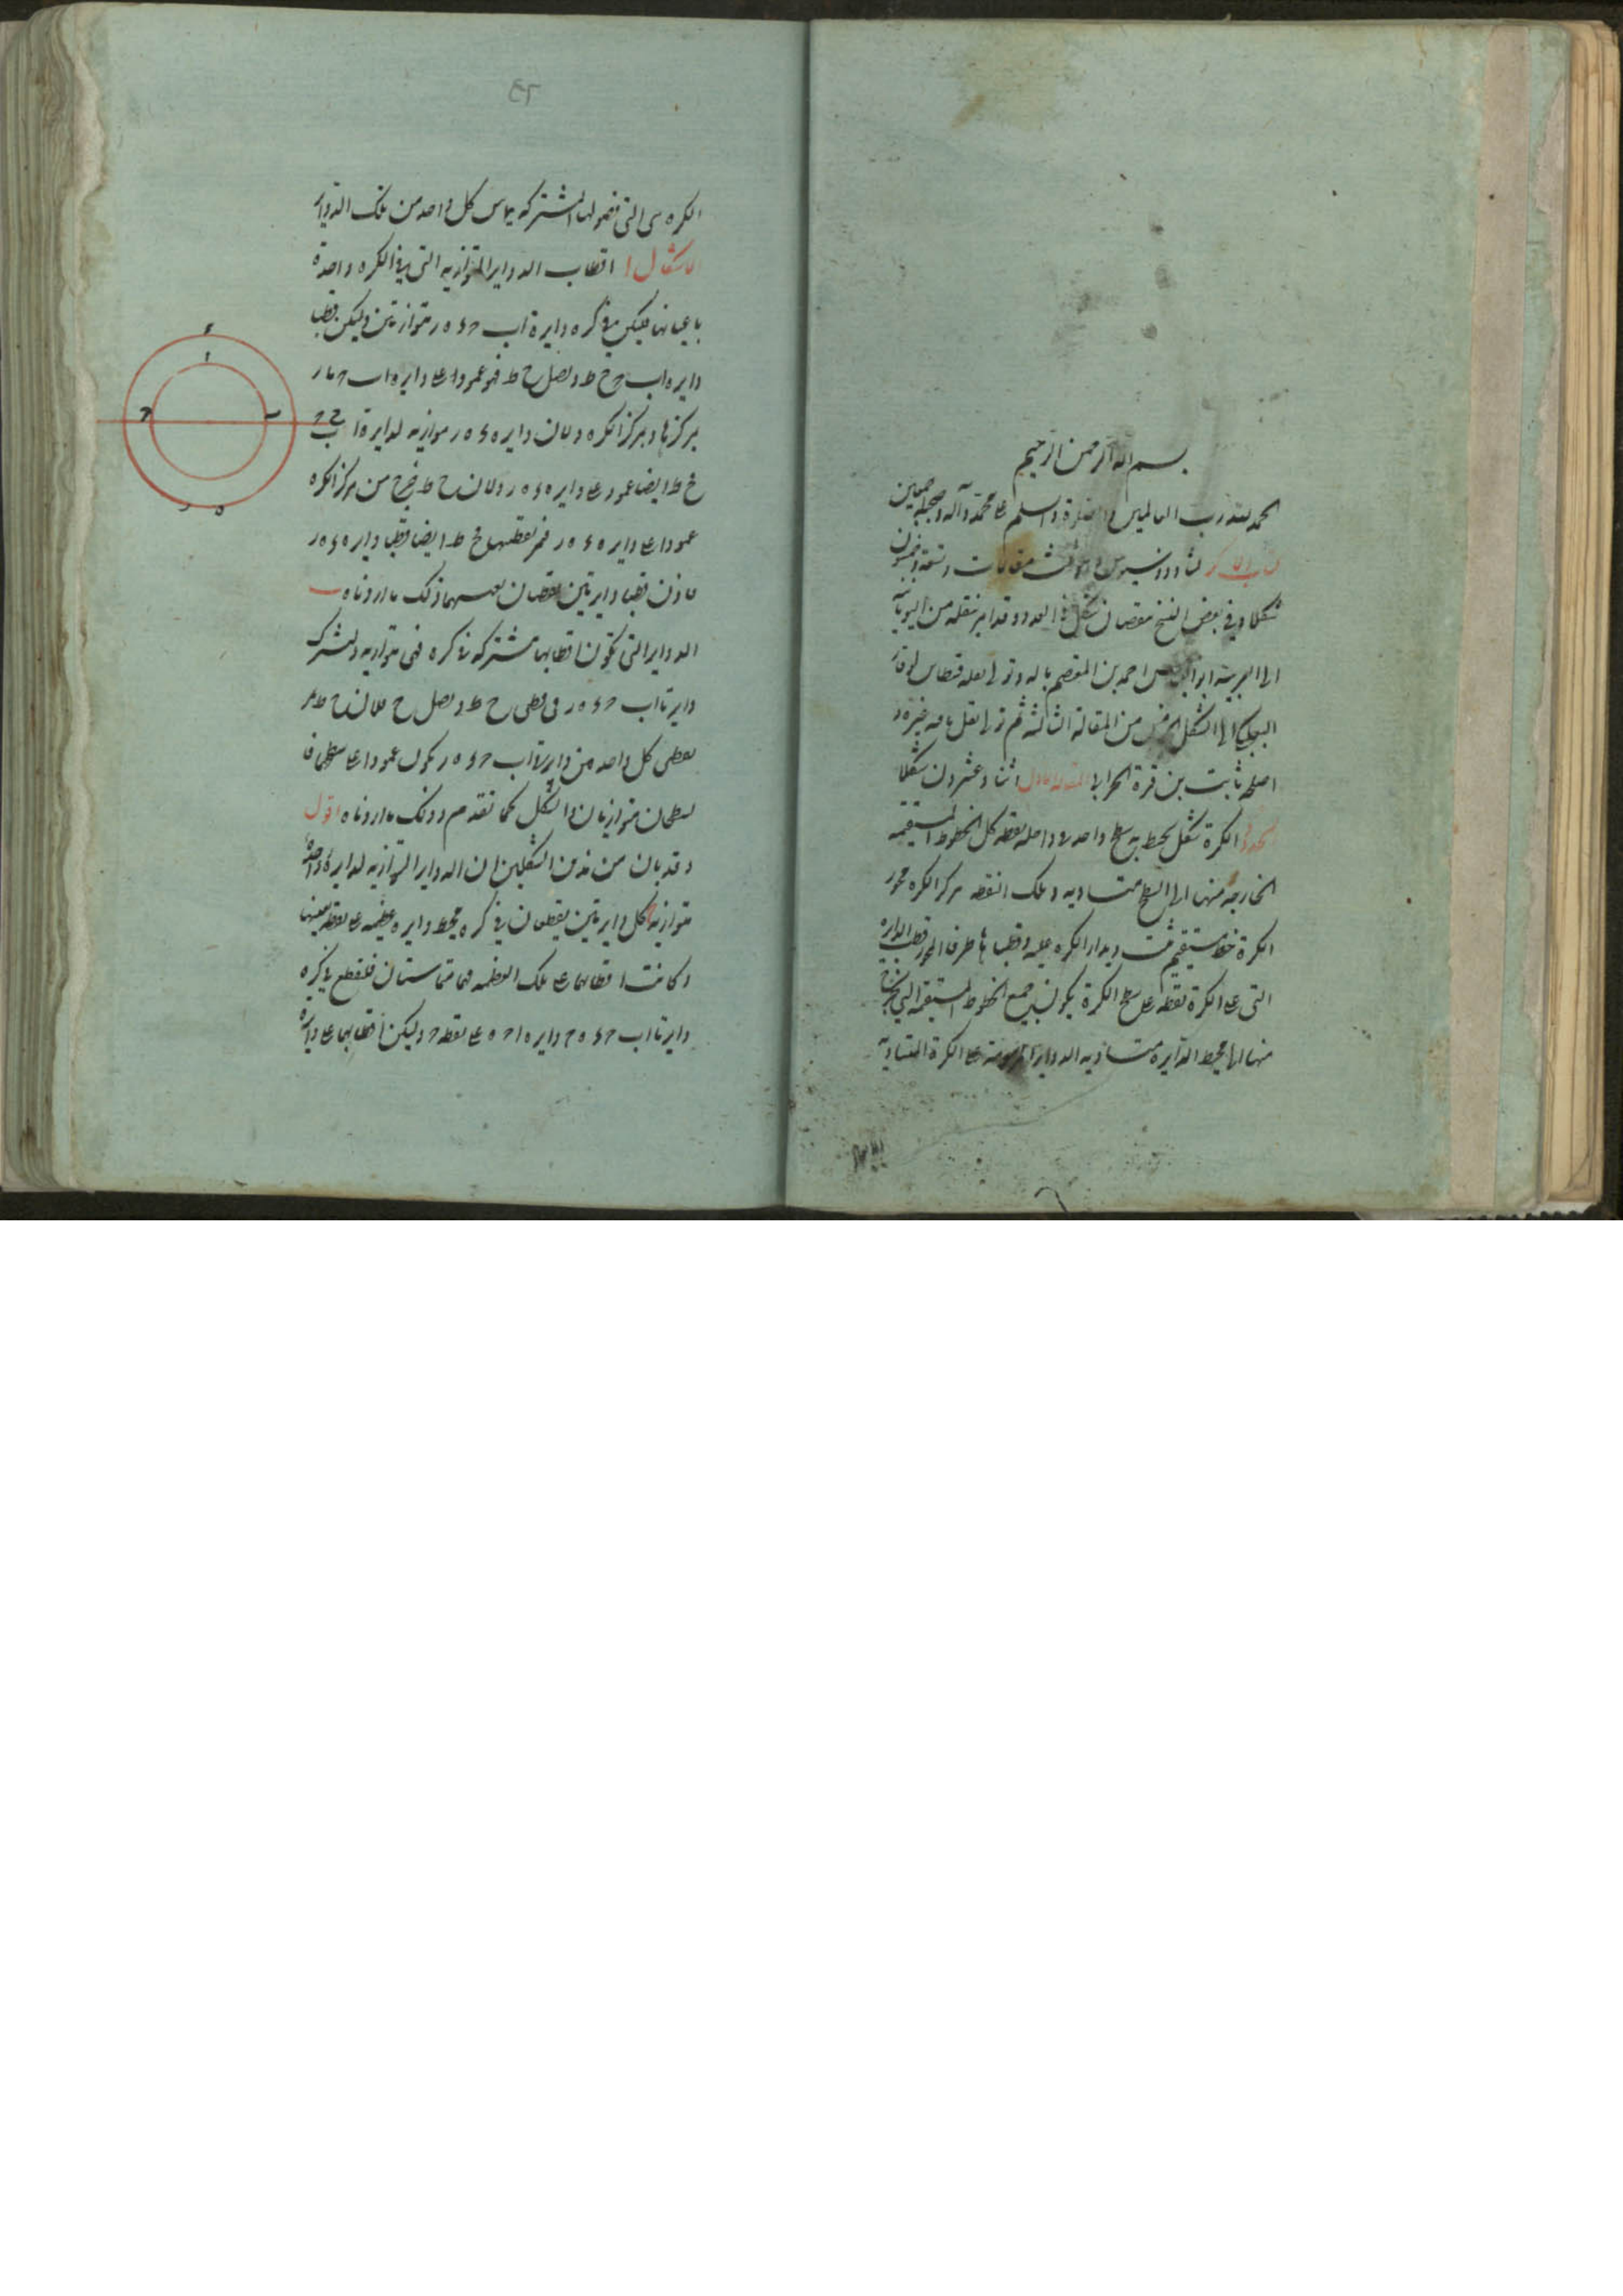 بسم الله الرحمن الرحيم
الحمد لله رب العالمين والصلوة والسلم على محمد وآله وصحبه اجمعين
كتاب الاكر لثاوذوسيوس وهو ثلث مقالات وتسعة وخمسون
شكلا وفي بعض النسخ بنقصان شكل في العدد وقد امر بنقله من اليونانية
الى العربية ابو العباس احمد بن المعتصم بالله وتولى نقله قسطا بن لوقا
البعلبكي الى الشكل الخامس من المقالة الثالثة ثم تولى نقل باقيه غيره و
اصلحه ثابت بن قرة الحراني المقالة الاولى اثنا وعشرون شكلا
الحدود الكرة شكل يحيط به سطح واحد في داخله نقطه كل الخطوط المستقيمه
الخارجه منها الى السطح متساويه وتلك النقطه مركز الكره محور
الكرة خط مستقيم مثبت ويدار الكره عليه وقطباها طرفا المحور قطب الدايره
التي على الكرة نقطه على سطح الكرة يكون جميع الخطوط المستقيمه التي تخرج
منها الى محيط الدايره متساويه الدواير المرسومة على الكرة المتساوية
الكره هى التى فصولها المشتركه يماس كل واحد من تلك الدواير
الاشكال ا اقطاب الدواير المتوازيه التى في الكره واحدة
باعيانها فليكن في كره دايرة اب ح د ه ر متوازيتين وليكن قطبا
دايره اب ح ح ط ونصل ح ط فهو عمود على دايره اب ح مار
بمركزها وبمركز الكره ولان دايره د ه ر موازيه لدايرة اب ح
ح ط ايضا عمود على دايره د ه ر ولان ح ط خرج من مركز الكره
عمودا على دايره د ه ر فمر بقطبيها فح ط ايضا قطبا دايره د ه ر
فاذن قطبا دايرتين نقطتان بعينهما وذلك ما اردناه ب
الدواير التى تكون اقطابها مشتركه في كره فهى متوازيه وليشترك
دايرتا اب ح د ه ر فى قطبى ح ط ونصل ح ط فلان ح ط مر
بقطبى كل واحد من دايرتى اب ح د ه ر يكون عمودا على سطحيهما
فالسطحان متوازيان والشكل كما تقدم وذلك ما اردناه اقول
وقد بان من هذين الشكلين ان الدواير المتوازيه لدايرة واحدة
متوازية ح كل دايرتين يقطعان في كره محيط دايره عظيمه على نقطه بعينها
وكانت اقطابهما على تلك العظيمه فهما متماستان فلنقطع في كره
دايرتا اب ح د ه ح دايره ا ح ه على نقطه ح وليكن اقطابهما على دايرة